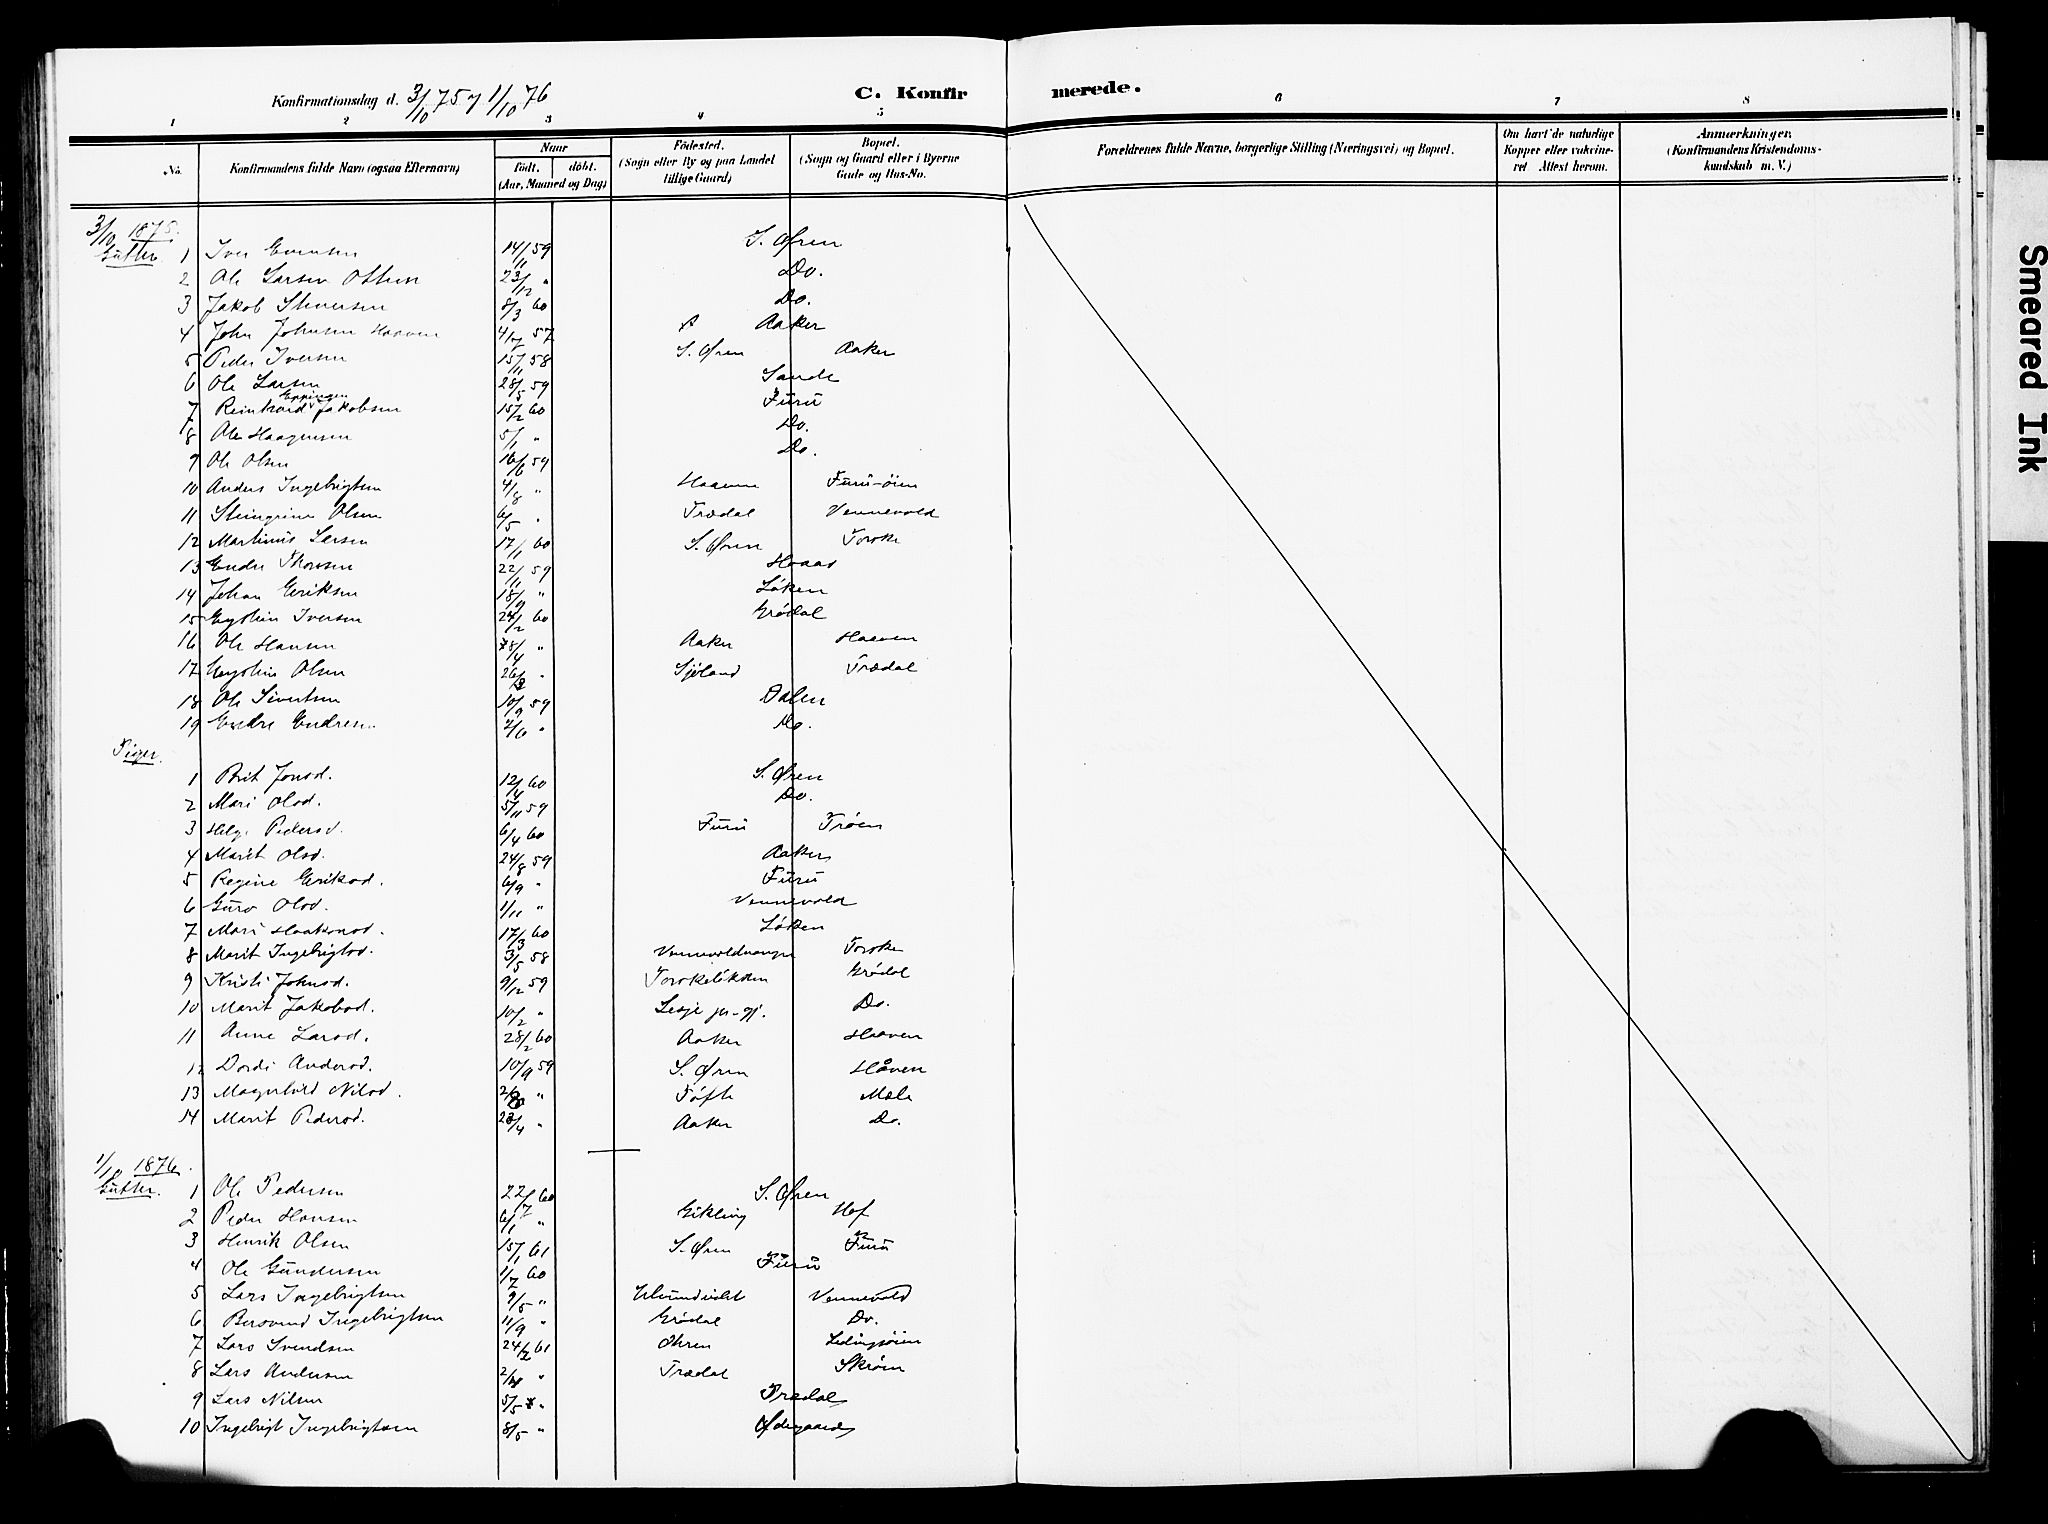 Konfirmationsdag d. 3/10 75 og 1/10 76
C. Konfirmerede.
1 2 3 4 5 6 7 8
No. Konfirmandens fulde Navn (ogsaa Efternavn) Naar født. døbt. (Aar, Maaned og Dag) Fødested. (Sogn eller By og paa Landet tillige Gaard) Bopæl. (Sogn og Gaard eller i Byerne Gade og Hus-No. Forældrenes fulde Navne, borgerlige Stilling (Næringsvei) og Bopæl. Om havt de naturlige Kopper eller vakcineret. Attest herom. Anmærkninger. (Konfirmandens Kristendomskundskab m. V.)
3/10 1875.
Gutter. 1 Iver Evensen 14/11 59 S. Øren
2 Ole Larsen Ottem 23/12 " Do.
3 Jakob Steversen 8/3 60 Do.
4 John Johnsen Haaven 57 Aaker
5 Peder Iversen 15/11 58 S. Øren Aaker
6 Ole Larsen 28/5 59 Sande
7 Reinhard Eppingen Jakobsen 15/2 60 Furu
8 Ole Haagensen 5/1 " Do.
9 Ole Olsen 16/6 59 Do.
10 Anders Ingebrigtsen 4/8 " Haaven Furu-øien
11 Steingrim Olsen 6/5 " Trædal Vennevold
12 Martinus Larsen 17/1 60 S. Øren Torske
13 Endre Thoresen 22/11 59 Hoaas
14 Johan Eriksen 18/9 " Løken
15 Eystein Iversen 24/2 60 Grødal
16 Ole Hansen 28/4 " Aaker Haaven
17 Eystein Olsen 26/3 " Sjøland Trædal
18 Ole Sivertsen 10/9 59 Dalen
19 Endre Endresen 2/6 " Do.
Piger.
1 Brit Jonsd. 12/4 60 S. Øren
2 Mari Olsd. 5/11 59 Do.
3 Helge Pedersd. 6/4 60 Furu Trøen
4 Marit Olsd. 24/8 59 Aaker
5 Regine Eriksd. 6/9 " Furu
6 Guro Olsd. 1/11 " Vennevold
7 Mari Haakonsd. 17/3 60 Løken
8 Marit Ingebrigtsd. 3/5 58 Vennevoldvangen Torske
9 Kristi Johnsd. 9/12 59 Torskeløkken Grødal
10 Marit Jakobsd. 10/2 " Lesje pr-gj. Do.
11 Anne Larsd. 28/2 60 Aaker Haaven
12 Dordi Andersd. 10/9 59 S. Øren Håven
13 Magnhild Nilsd. 2/8 " Tøfte Mæle
14 Marit Pedersd. 23/4 " Aaker Do.
1/10 1876.
Gutter. 1 Ole Pedersen 22/7 60 S. Øren
2 Peder Hansen 6/1 " Gikling Hof
3 Henrik Olsen 15/1 61 S. Øren Furu
4 Ole Gundersen 1/7 60 Furu
5 Lars Ingebrigtsen 9/5 " Vennevold
6 Bersvend Ingebrigtsen 11/9 " Grødal Do.
7 Lars Svendsen 24/2 61 Øhren Ledingsøien
8 Lars Andersen 2/4 " Trædal Skrøen
9 Lars Nilsen 5/5 " Trædal
10 Ingebrigt Ingebrigtsen 8/5 " Ødegaard
Smeared Ink